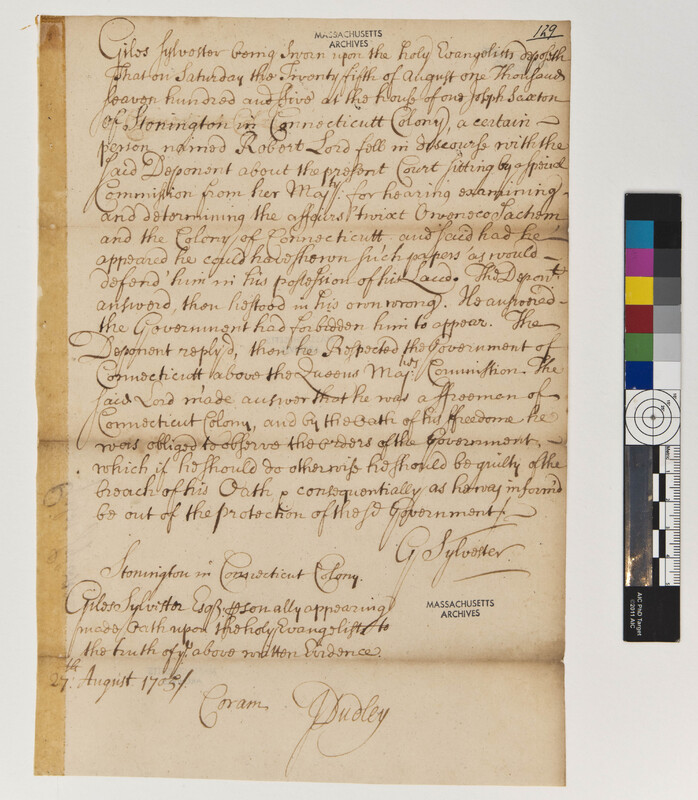 129
MASSACHUSETTS
ARCHIVES
Giles Sylvester being sworn upon the holy Evangelists deposeth
That on Saturday the Twenty fifth of August one Thousand
seaven hundred and five at the house of one Joseph Saxton
of Stonington in Connecticutt Colony, a certain
person named Robert Lord fell in discourse with the
said Deponent about the present Court sitting by a speciall
Commission from her Maj:ty for hearing examining
and determining the affairs twixt Oweneco Sachem
and the Colony of Connecticutt and said had he
appeared he could have shewn such papers as would
defend him in his possession of his Land. The Depon:t
answerd, then he stood in his own wrong. He answered
the Government had forbidden him to appear. The
Deponent reply'd, then he Respected the Government of
Connecticutt above the Queens Maj:ties Commission. The
said Lord made answer that he was a ffreeman of
Connecticut Colony, and by the Oath of his ffreedome he
was obliged to observe the orders of the Government,
which if he should do otherwise he should be guilty of the
breach of his Oath & consequentially as he was inform'd
be out of the protection of the s:d Government.
G Sylvester
Stonington in Connecticut Colony.
Giles Sylvister Esq:r personally appearing
made Oath upon the holy Evangelists to
the truth of y:e above written Evidence.
27:th August 1705/.
Coram J Dudley
MASSACHUSETTS
ARCHIVES
AIC PhD Target
©2011 AIC